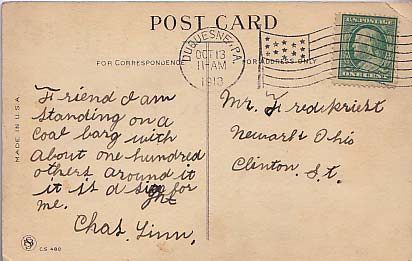 POST CARD
FOR CORRESPONDENCE
FOR ADDRESS ONLY
DUQUESNE, PA.
OCT 13
11-AM
1913
U.S. POSTAGE
ONE CENT
MADE IN U.S.A.
Friend I am
standing on a
Coal barg with
about one hundred
others around it
it is a for
me.
Chas. Linn.
Mr. Fred Kriest
Newark Ohio
Clinton. St.
CS 480